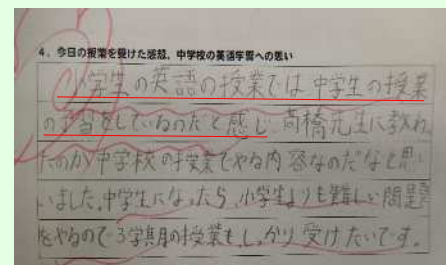 4. 今日の授業を受けた感想、中学校の英語学習への思い
小学生の英語の授業では中学生の授業
の予習をしているのだと感じ、高橋先生に教わっ
たのが中学校の授業でやる内容なのだなと思い
ました。中学生になったら、小学生よりも難しい問題
をやるので3学期の授業も、しっかり受けたいです。